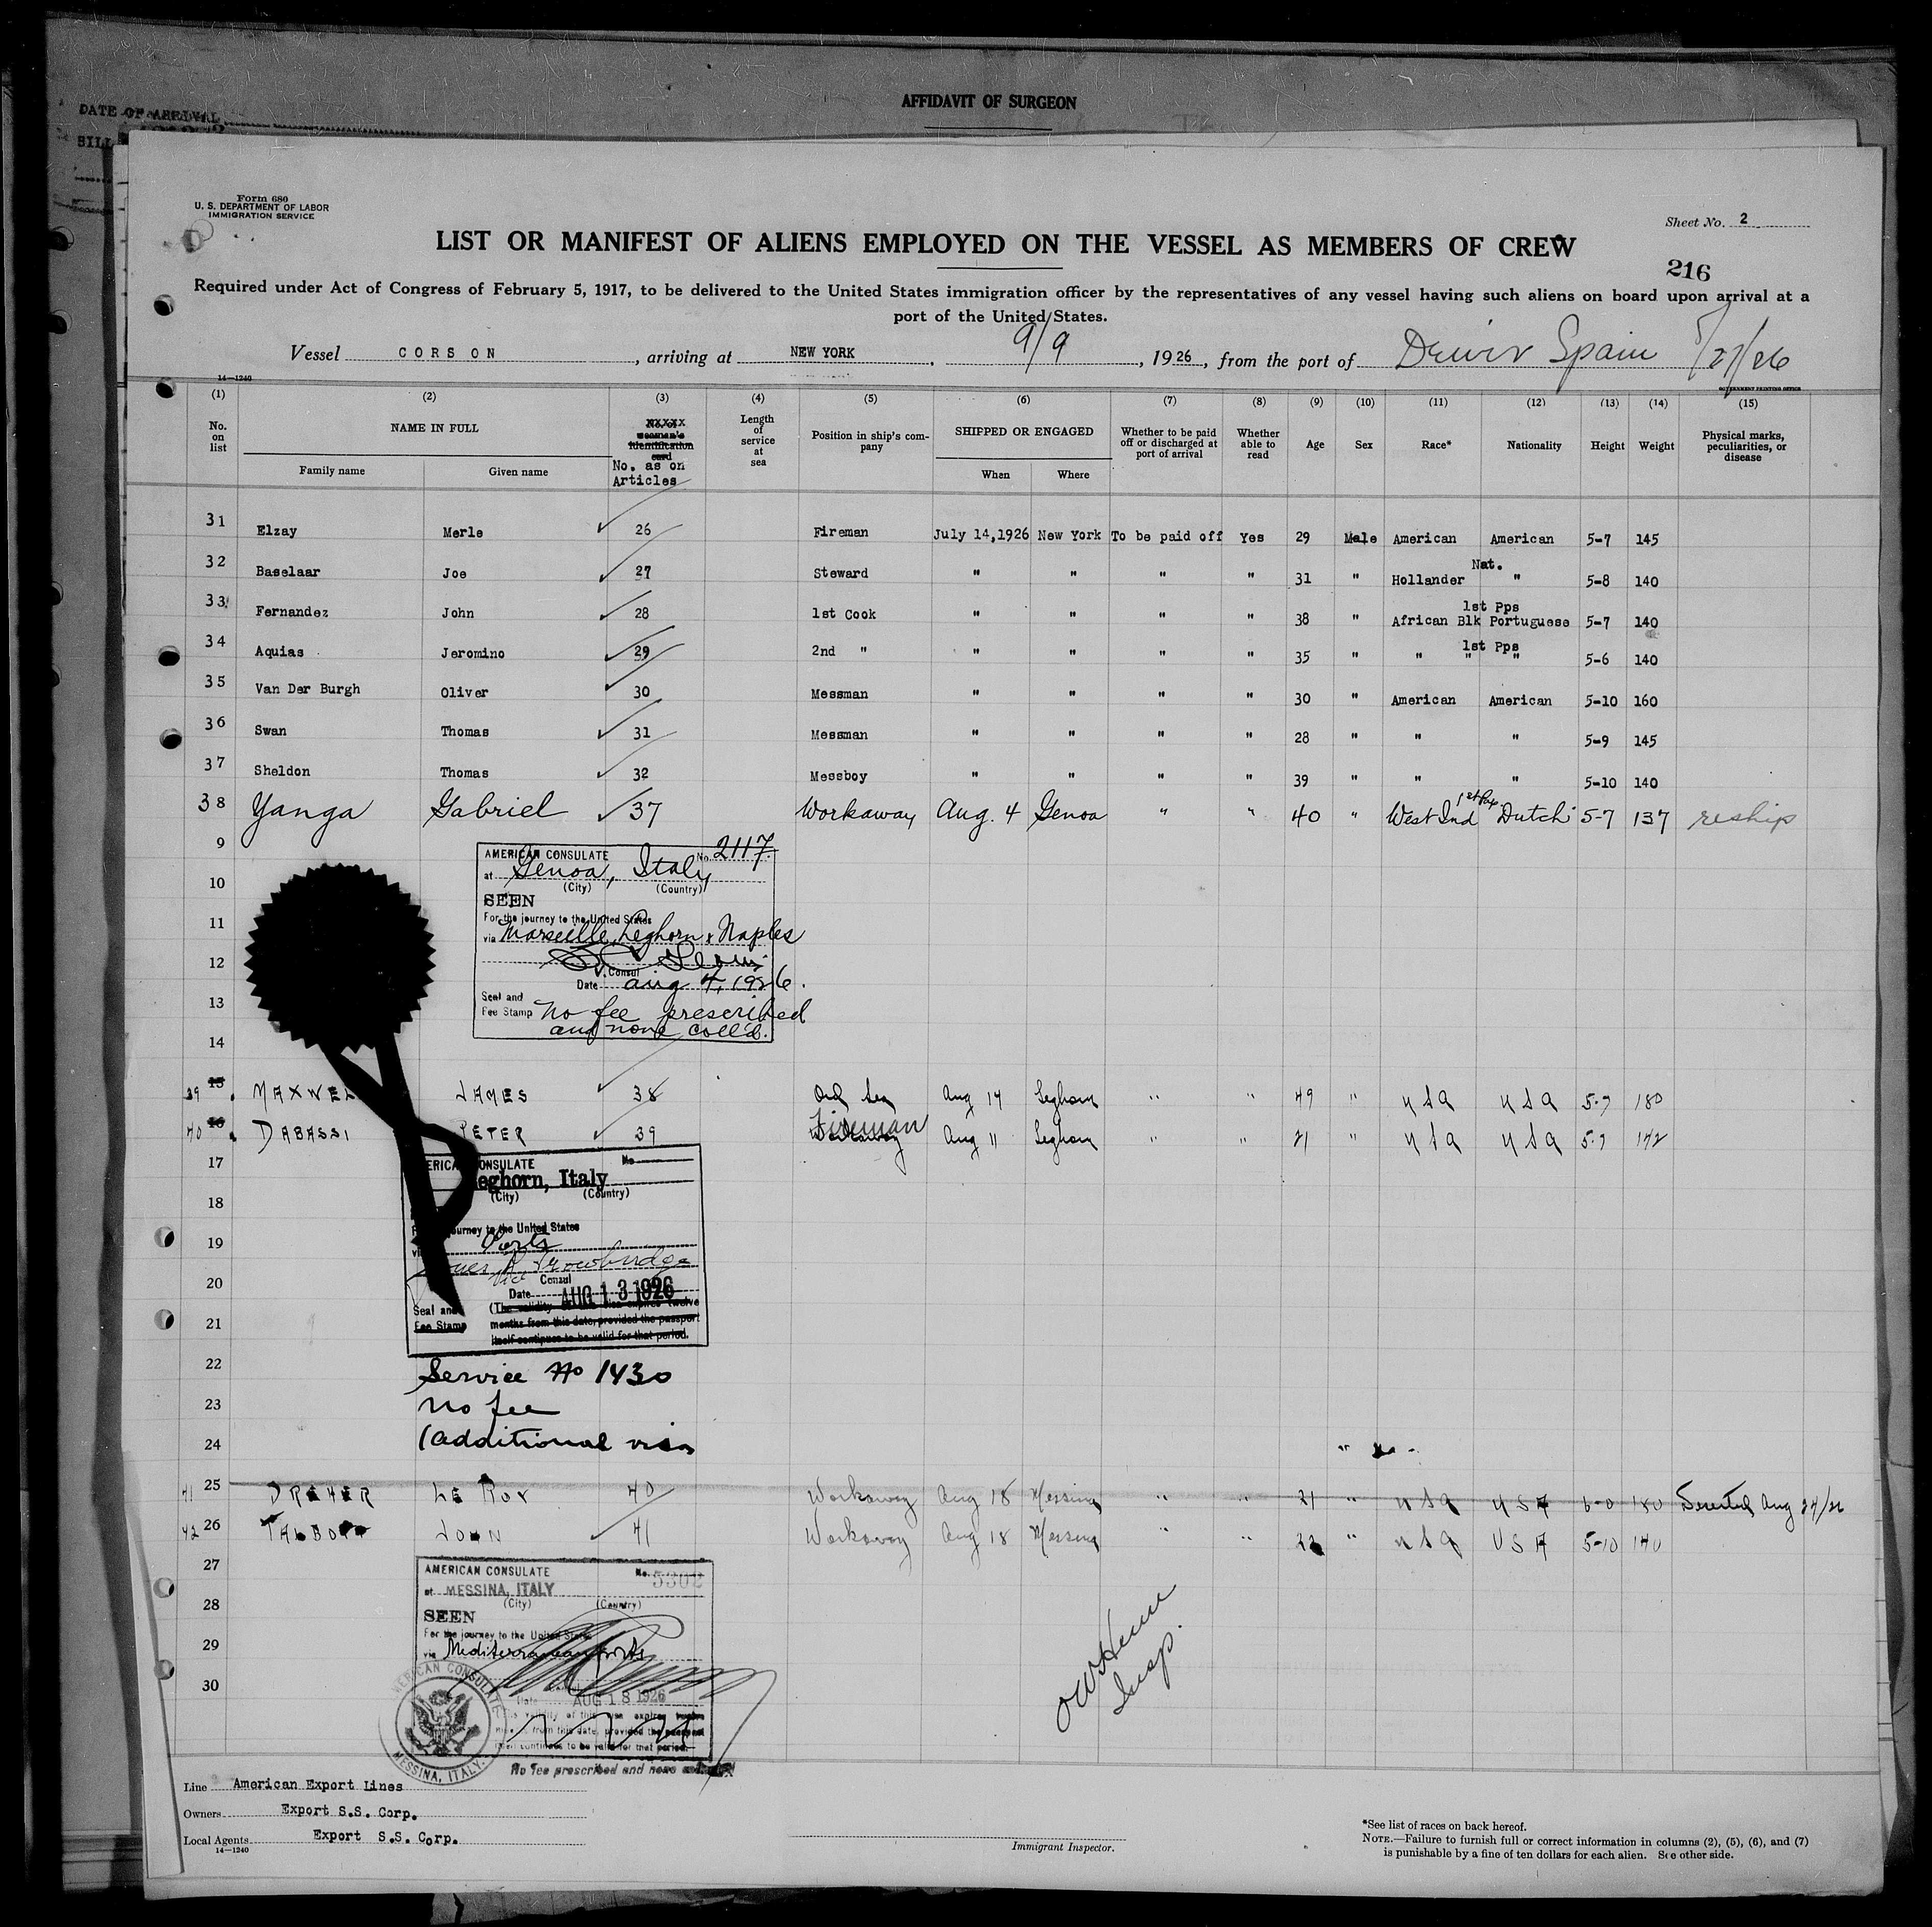 AFFIDAVIT OF SURGEON
DATE OF ARRIVAL
BILL
Form 680
U. S. DEPARTMENT OF LABOR
IMMIGRATION SERVICE
Sheet No. 2
LIST OR MANIFEST OF ALIENS EMPLOYED ON THE VESSEL AS MEMBERS OF CREW
216
Required under Act of Congress of February 5, 1917, to be delivered to the United States immigration officer by the representatives of any vessel having such aliens on board upon arrival at a
port of the United States.
Vessel CORSON, arriving at NEW YORK, 9/9, 1926, from the port of Spain 8/27/26
14—1240
GOVERNMENT PRINTING OFFICE
(1) (2) (3) (4) (5) (6) (7) (8) (9) (10) (11) (12) (13) (14) (15)
No. on list
NAME IN FULL
Family name Given name
No. as on Articles
Length of service at sea
Position in ship's company
SHIPPED OR ENGAGED
When Where
Whether to be paid off or discharged at port of arrival
Whether able to read
Age
Sex
Race*
Nationality
Height
Weight
Physical marks, peculiarities, or disease
31 Elzay Merle 26 Fireman July 14,1926 New York To be paid off Yes 29 Male American American 5-7 145
32 Baselaar Joe 27 Steward " " " " 31 " Hollander Nat. " 5-8 140
33 Fernandez John 28 1st Cook " " " " 38 " African Blk 1st Pps Portuguese 5-7 140
34 Aquias Jeromino 29 2nd " " " " " 35 " " " 1st Pps " 5-6 140
35 Van Der Burgh Oliver 30 Messman " " " " 30 " American American 5-10 160
36 Swan Thomas 31 Messman " " " " 28 " " " 5-9 145
37 Sheldon Thomas 32 Messboy " " " " 39 " " " 5-10 140
38 Yanga Gabriel 37 Workaway Aug. 4 Genoa " " 40 " West Ind 1st Pap. Dutch 5-7 137 reship
9
AMERICAN CONSULATE No. 2117.
at Genoa, Italy
(City) (Country)
10
SEEN
11
For the journey to the United States
via Marseille, Leghorn & Naples
12
V. Consul
Date Aug 4, 1926.
13
Seal and Fee Stamp No fee prescribed
and none coll'd.
14
39 15 MAXWEL JAMES 38 Ord Sea Aug 14 Leghorn " " 49 " USA USA 5-7 180
40 16 DABASSI PETER 39 Workaway Fireman Aug 11 Leghorn " " 21 " USA USA 5-7 142
17
AMERICAN CONSULATE No
Leghorn, Italy
(City) (Country)
18
For the journey to the United States
19
via Ports
20
Vice Consul
Date AUG 13 1926
Seal and Fee Stamp
(The validity of this visa expires twelve
21
months from this date, provided the passport
itself continues to be valid for that period.
22
Service No 1430
23
No fee
24
(additional visa
41 25 DREHER LE ROY 40 Workaway Aug 18 Messina " " 21 " USA USA 6-0 180 Deserted Aug 24/26
42 26 TALBOTT JOHN 41 Workaway Aug 18 Messina " " 22 " USA USA 5-10 140
27
AMERICAN CONSULATE No. 5302
at MESSINA, ITALY
28
(City) (Country)
SEEN
29
For the journey to the United States
via Mediterranean ports
30
Date AUG 18 1926
The validity of this visa expires twelve
months from this date, provided the passport
itself continues to be valid for that period.
AMERICAN CONSULATE
MESSINA, ITALY.
No fee prescribed and none
Insp.
Line American Export Lines
Owners Export S.S. Corp.
Local Agents Export S.S. Corp.
14—1240
Immigrant Inspector.
*See list of races on back hereof.
NOTE.—Failure to furnish full or correct information in columns (2), (5), (6), and (7)
is punishable by a fine of ten dollars for each alien. See other side.